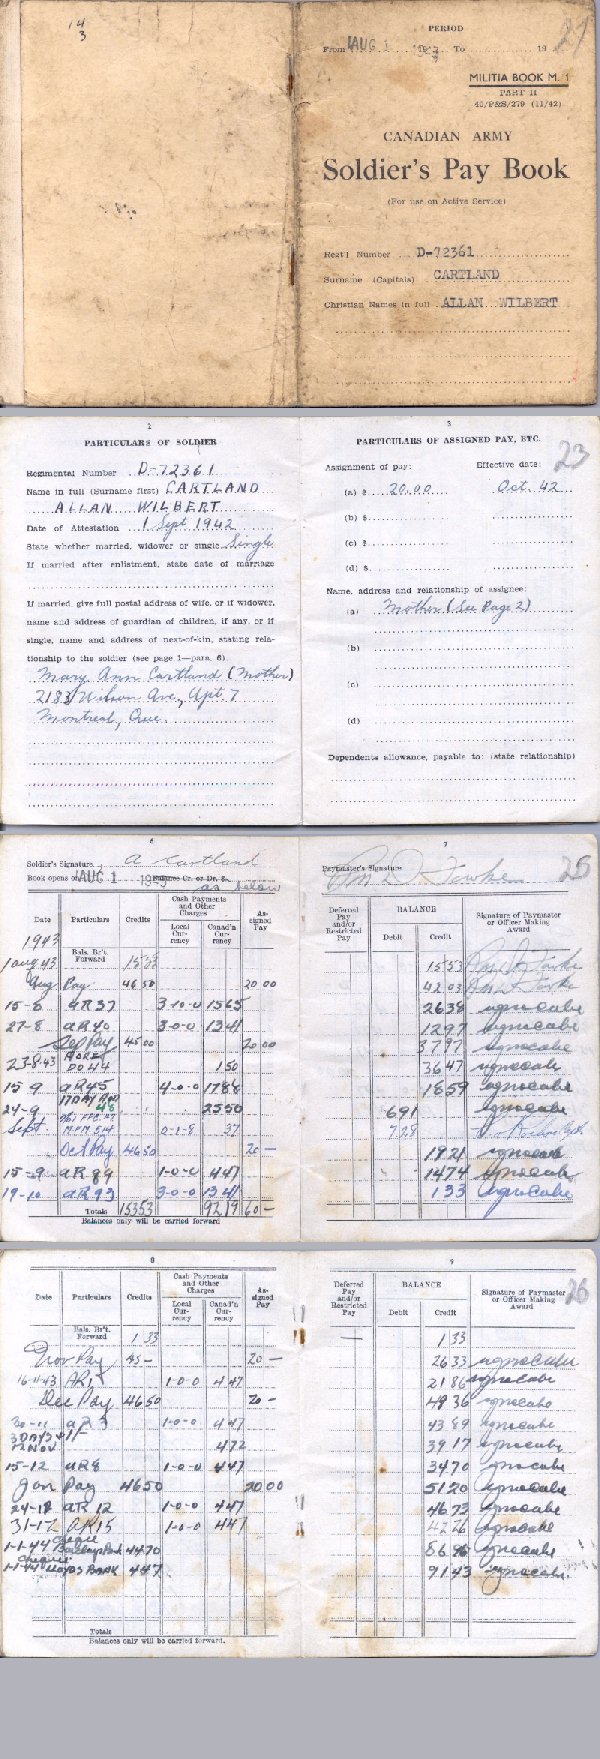 14
3
PERIOD
From AUG 1 1943 To 19
21
MILITIA BOOK M. 1
PART II
40/P&S/279 (11/42)
CANADIAN ARMY
Soldier's Pay Book
(For use on Active Service)
Regt'l Number D-72361
Surname (Capitals) CARTLAND
Christian Names in full ALLAN WILBERT
2
PARTICULARS OF SOLDIER
Regimental Number D-72361
Name in full (Surname first) CARTLAND
ALLAN WILBERT
Date of Attestation 1 Sept 1942
State whether married, widower or single Single
If married after enlistment, state date of marriage
If married, give full postal address of wife, or if widower,
name and address of guardian of children, if any, or if
single, name and address of next-of-kin, stating rela-
tionship to the soldier (see page 1—para. 6)
Mary Ann Cartland (Mother)
2183 Wilson Ave, Apt. 7
Montreal, Que.
3
PARTICULARS OF ASSIGNED PAY, ETC.
23
Assignment of pay: Effective date:
(a) $ 20.00 Oct. 42
(b) $
(c) $
(d) $
Name, address and relationship of assignee:
(a) Mother (See Page 2)
(b)
(c)
(d)
Dependents allowance, payable to: (state relationship)
6
Soldier's Signature A Cartland
Book opens on AUG 1 1943 Balance Cr. or Dr. $ as below
Date Particulars Credits Cash Payments and Other Charges Local Currency Canad'n Currency Assigned Pay
1943
Bals. Br't. Forward
1 Aug 43 15 53
Aug Pay 46 50 20 00
15-8 AR37 3-10-0 15 65
27-8 AR40 3-0-0 13 41
Sep Pay 45 00 20 00
23-8-43 DO 44 1 50
15-9 AR45 4-0-0 17 88
24-9 48 25 50
Sept 0-1-8 37
Oct Pay 46 50 20 —
15-9 AR89 1-0-0 4 47
19-10 AR93 3-0-0 13 41
Totals 153 53 92 19 60 —
Balances only will be carried forward
7
Paymaster's Signature
25
Deferred Pay and/or Restricted Pay BALANCE Debit Credit Signature of Paymaster or Officer Making Award
15 53
42 03
26 38
12 97
37 97
36 47
18 59
6 91
7 28
19 21
14 74
1 33
8
Date Particulars Credits Cash Payments and Other Charges Local Currency Canad'n Currency Assigned Pay
Bals. Br't. Forward 1 33
Nov Pay 45 — 20 —
16-11-43 AR1 1-0-0 4 47
Dec Pay 46 50 20 —
30-11 AR3 1-0-0 4 47
3 DAYS
12 Nov 4 72
15-12 AR8 1-0-0 4 47
Jan Pay 46 50 20 00
24-12 AR 12 1-0-0 4 47
31-12 AR15 1-0-0 4 47
1-1-44 44 70
1-1-44 LLOYDS BANK 4 47
Totals
Balances only will be carried forward.
9
26
Deferred Pay and/or Restricted Pay BALANCE Debit Credit Signature of Paymaster or Officer Making Award
— 1 33
26 33
21 86
48 36
43 89
39 17
34 70
51 20
46 73
42 26
86 96
91 43